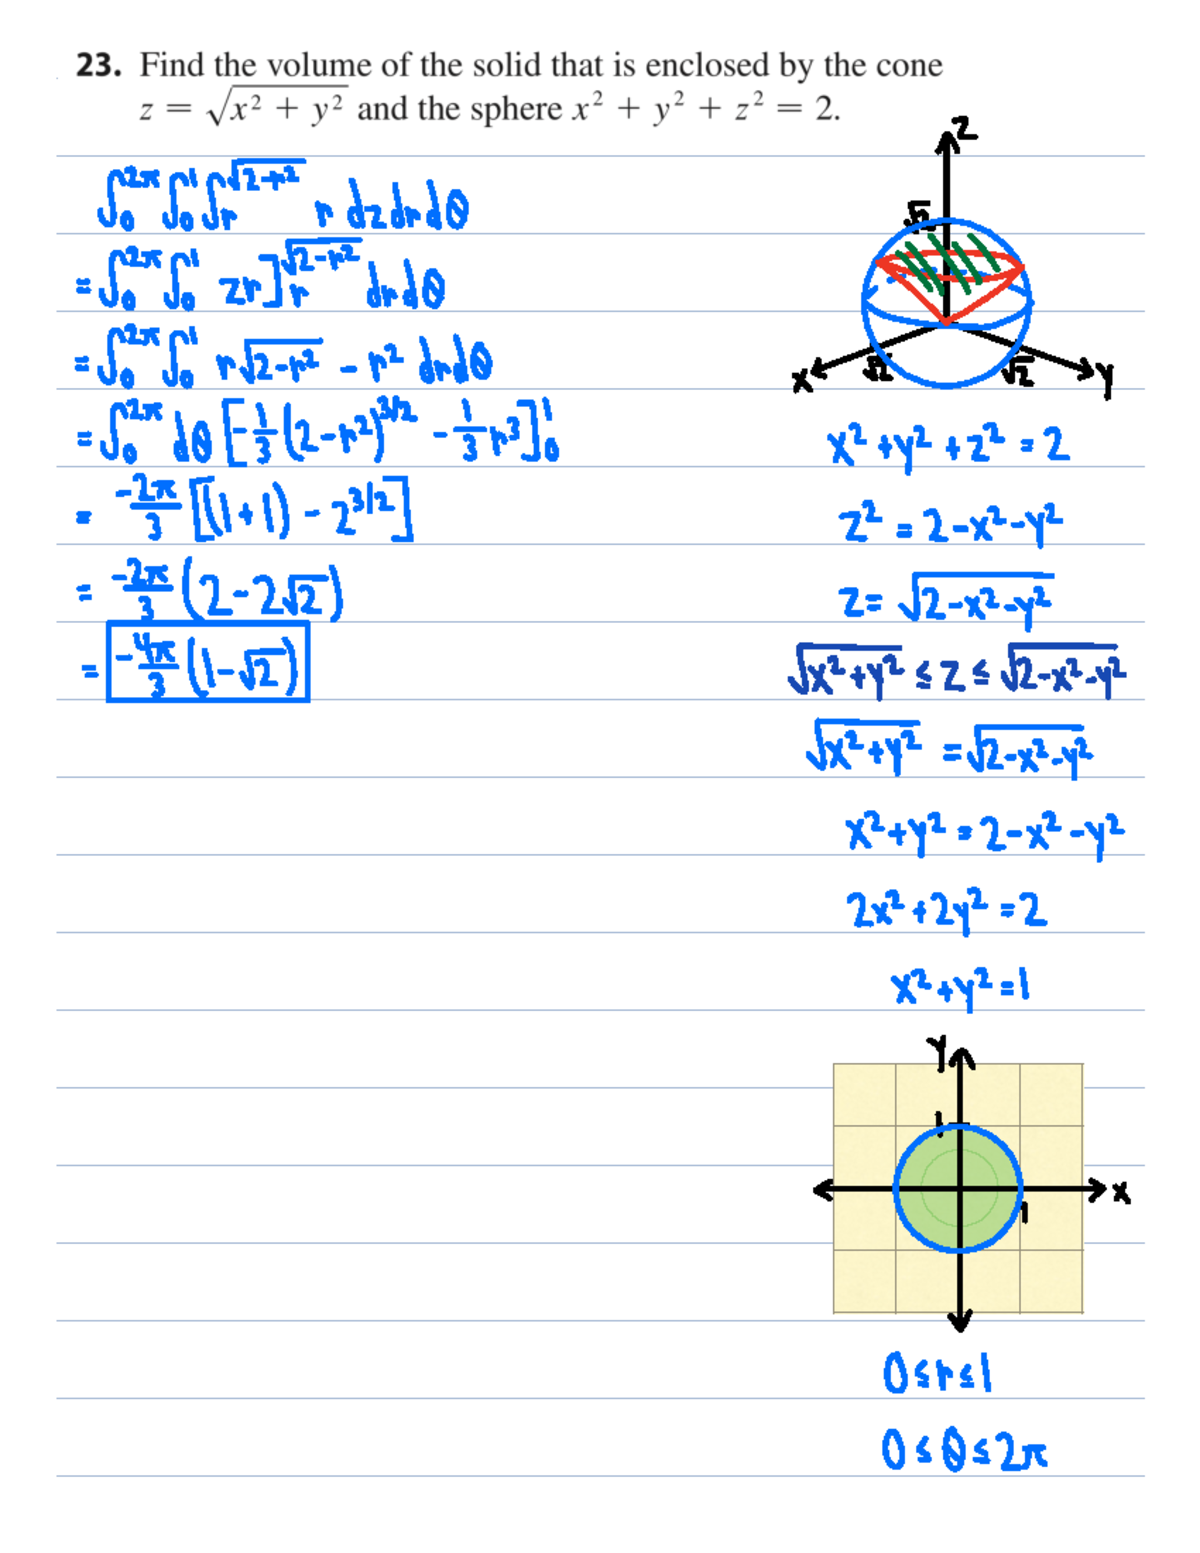 23. Find the volume of the solid that is enclosed by the cone
z = √(x² + y²) and the sphere x² + y² + z² = 2.
∫₀^2π ∫₀^1 ∫ᵣ^√(2-r²) r dz dr dθ
= ∫₀^2π ∫₀^1 zr]ᵣ^√(2-r²) dr dθ
= ∫₀^2π ∫₀^1 r√(2-r²) - r² dr dθ
= ∫₀^2π dθ [-1/3 (2-r²)^3/2 - 1/3 r³]₀^1
= -2π/3 [(1+1) - 2^3/2]
= -2π/3 (2-2√2)
= -4π/3 (1-√2)
z
√2
x
√2
√2
y
x² + y² + z² = 2
z² = 2-x²-y²
z = √(2-x²-y²)
√(x²+y²) ≤ z ≤ √(2-x²-y²)
√(x²+y²) = √(2-x²-y²)
x²+y² = 2-x²-y²
2x²+2y² = 2
x²+y² = 1
y
1
x
1
0 ≤ r ≤ 1
0 ≤ θ ≤ 2π